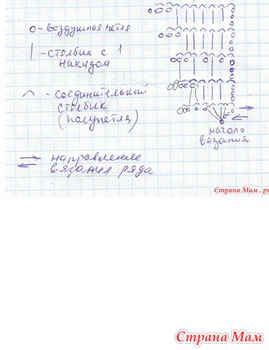 о - воздушная петля
| - столбик с 1
накидом
⌒ - соединительный
столбик
(полупетля)
начало
вязания
направление
вязания ряда
Страна Мам.ру
Страна Мам